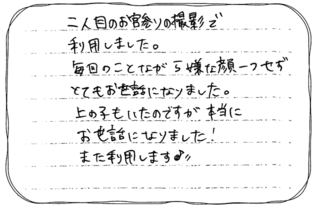 二人目のお宮参りの撮影で
利用しました。
毎回のことながら嫌な顔一つせず
とてもお世話になりました。
上の子もいたのですが本当に
お世話になりました！
また利用します♪〃